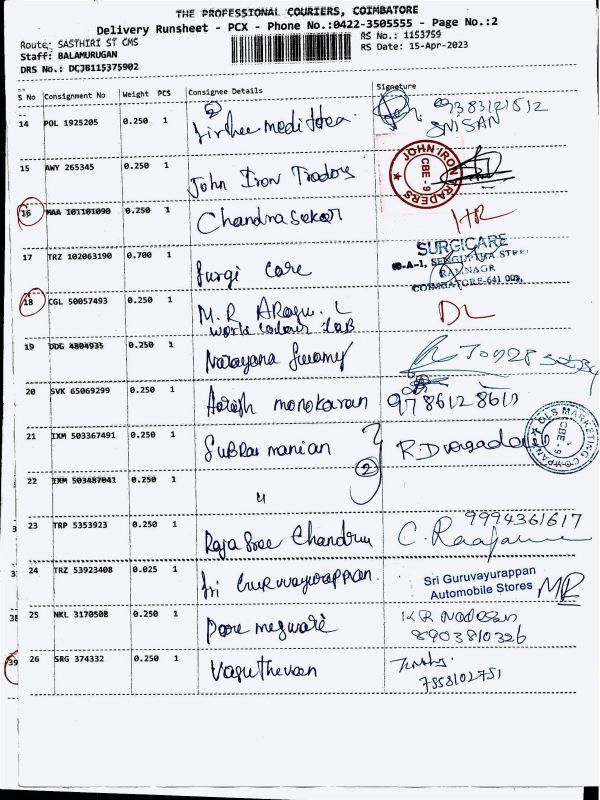 THE PROFESSIONAL COURIERS, COIMBATORE
Delivery Runsheet - PCX - Phone No.:0422-3505555 - Page No.:2
Route: SASTHIRI ST CMS
RS No.: 1153759
Staff: BALAMURUGAN
RS Date: 15-Apr-2023
DRS No.: DCJB115375902
S No Consignment No Weight PCS Consignee Details Signature
14 POL 1925205 0.250 1
SNISAN
15 AWY 265345 0.250 1 John Iron Traders
JOHN IRON TRADERS
CBE - 9
16 MAA 101101090 0.250 1 Chandrasekar HR
17 TRZ 102063190 0.700 1 Surgi care
SURGICARE
RAMNAGR
COIMBATORE-641 009.
18 CGL 50057493 0.250 1 M. R DL
19 DDG 4804935 0.250 1 Narayana Swamy
20 SVK 65069299 0.250 1 manokaran
21 IXM 503367491 0.250 1 Subramanian
GLS MARKETING COMPANY
CBE - 9
22 IXM 503487041 0.250 1 "
2
23 TRP 5353923 0.250 1 Raja Sree 9994361617
24 TRZ 53923408 0.025 1 Sri Guruvayurappan
Sri Guruvayurappan
Automobile Stores MR
25 NKL 3170508 0.250 1
8903810326
39 26 SRG 374332 0.250 1
7558102751